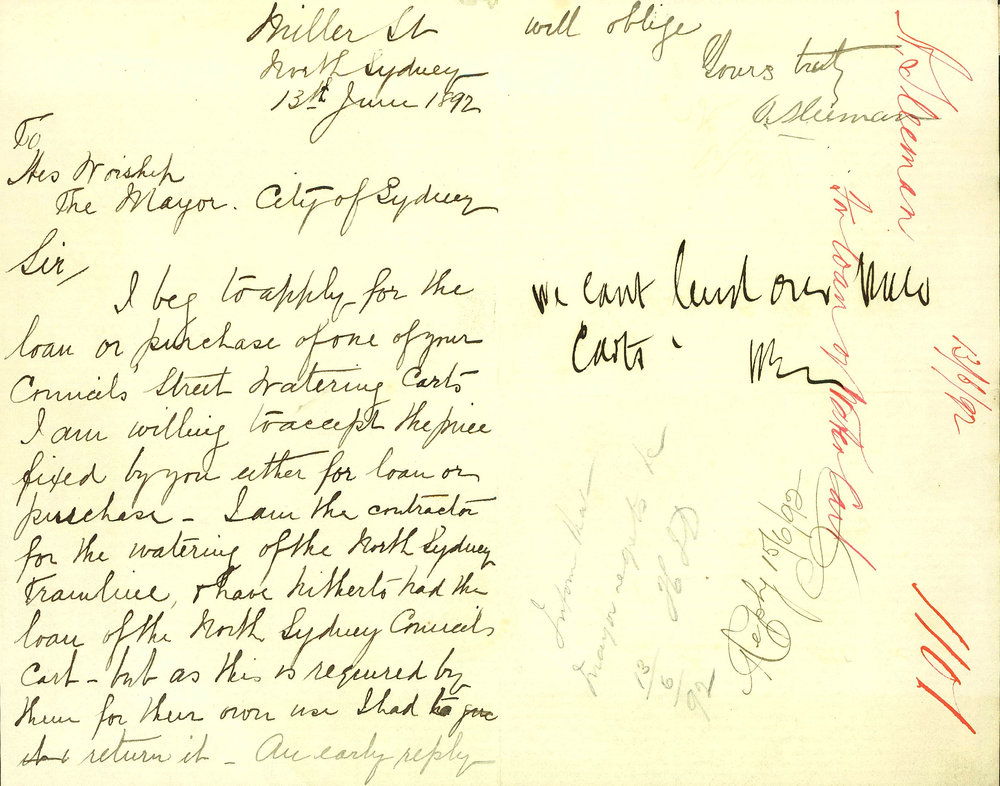 Miller St
North Sydney
13th June 1892
To
His Worship
The Mayor. City of Sydney
Sir,
I beg to apply for the
loan or purchase of one of your
Councils Street Watering Carts
I am willing to accept the price
fixed by you either for loan or
purchase - I am the contractor
for the watering of the North Sydney
Tramline, & have hitherto had the
loan of the North Sydney Councils
Cart - but as this is required by
them for their own use I had to give
return it - An early reply
will oblige
Yours truly
A Sleeman
We cant lend our
Carts.
Inform that
Mayor regrets &c
13/6/92
Reply 15/6/92
A. Sleeman
For loan of Water Cart
13/6/92
1107